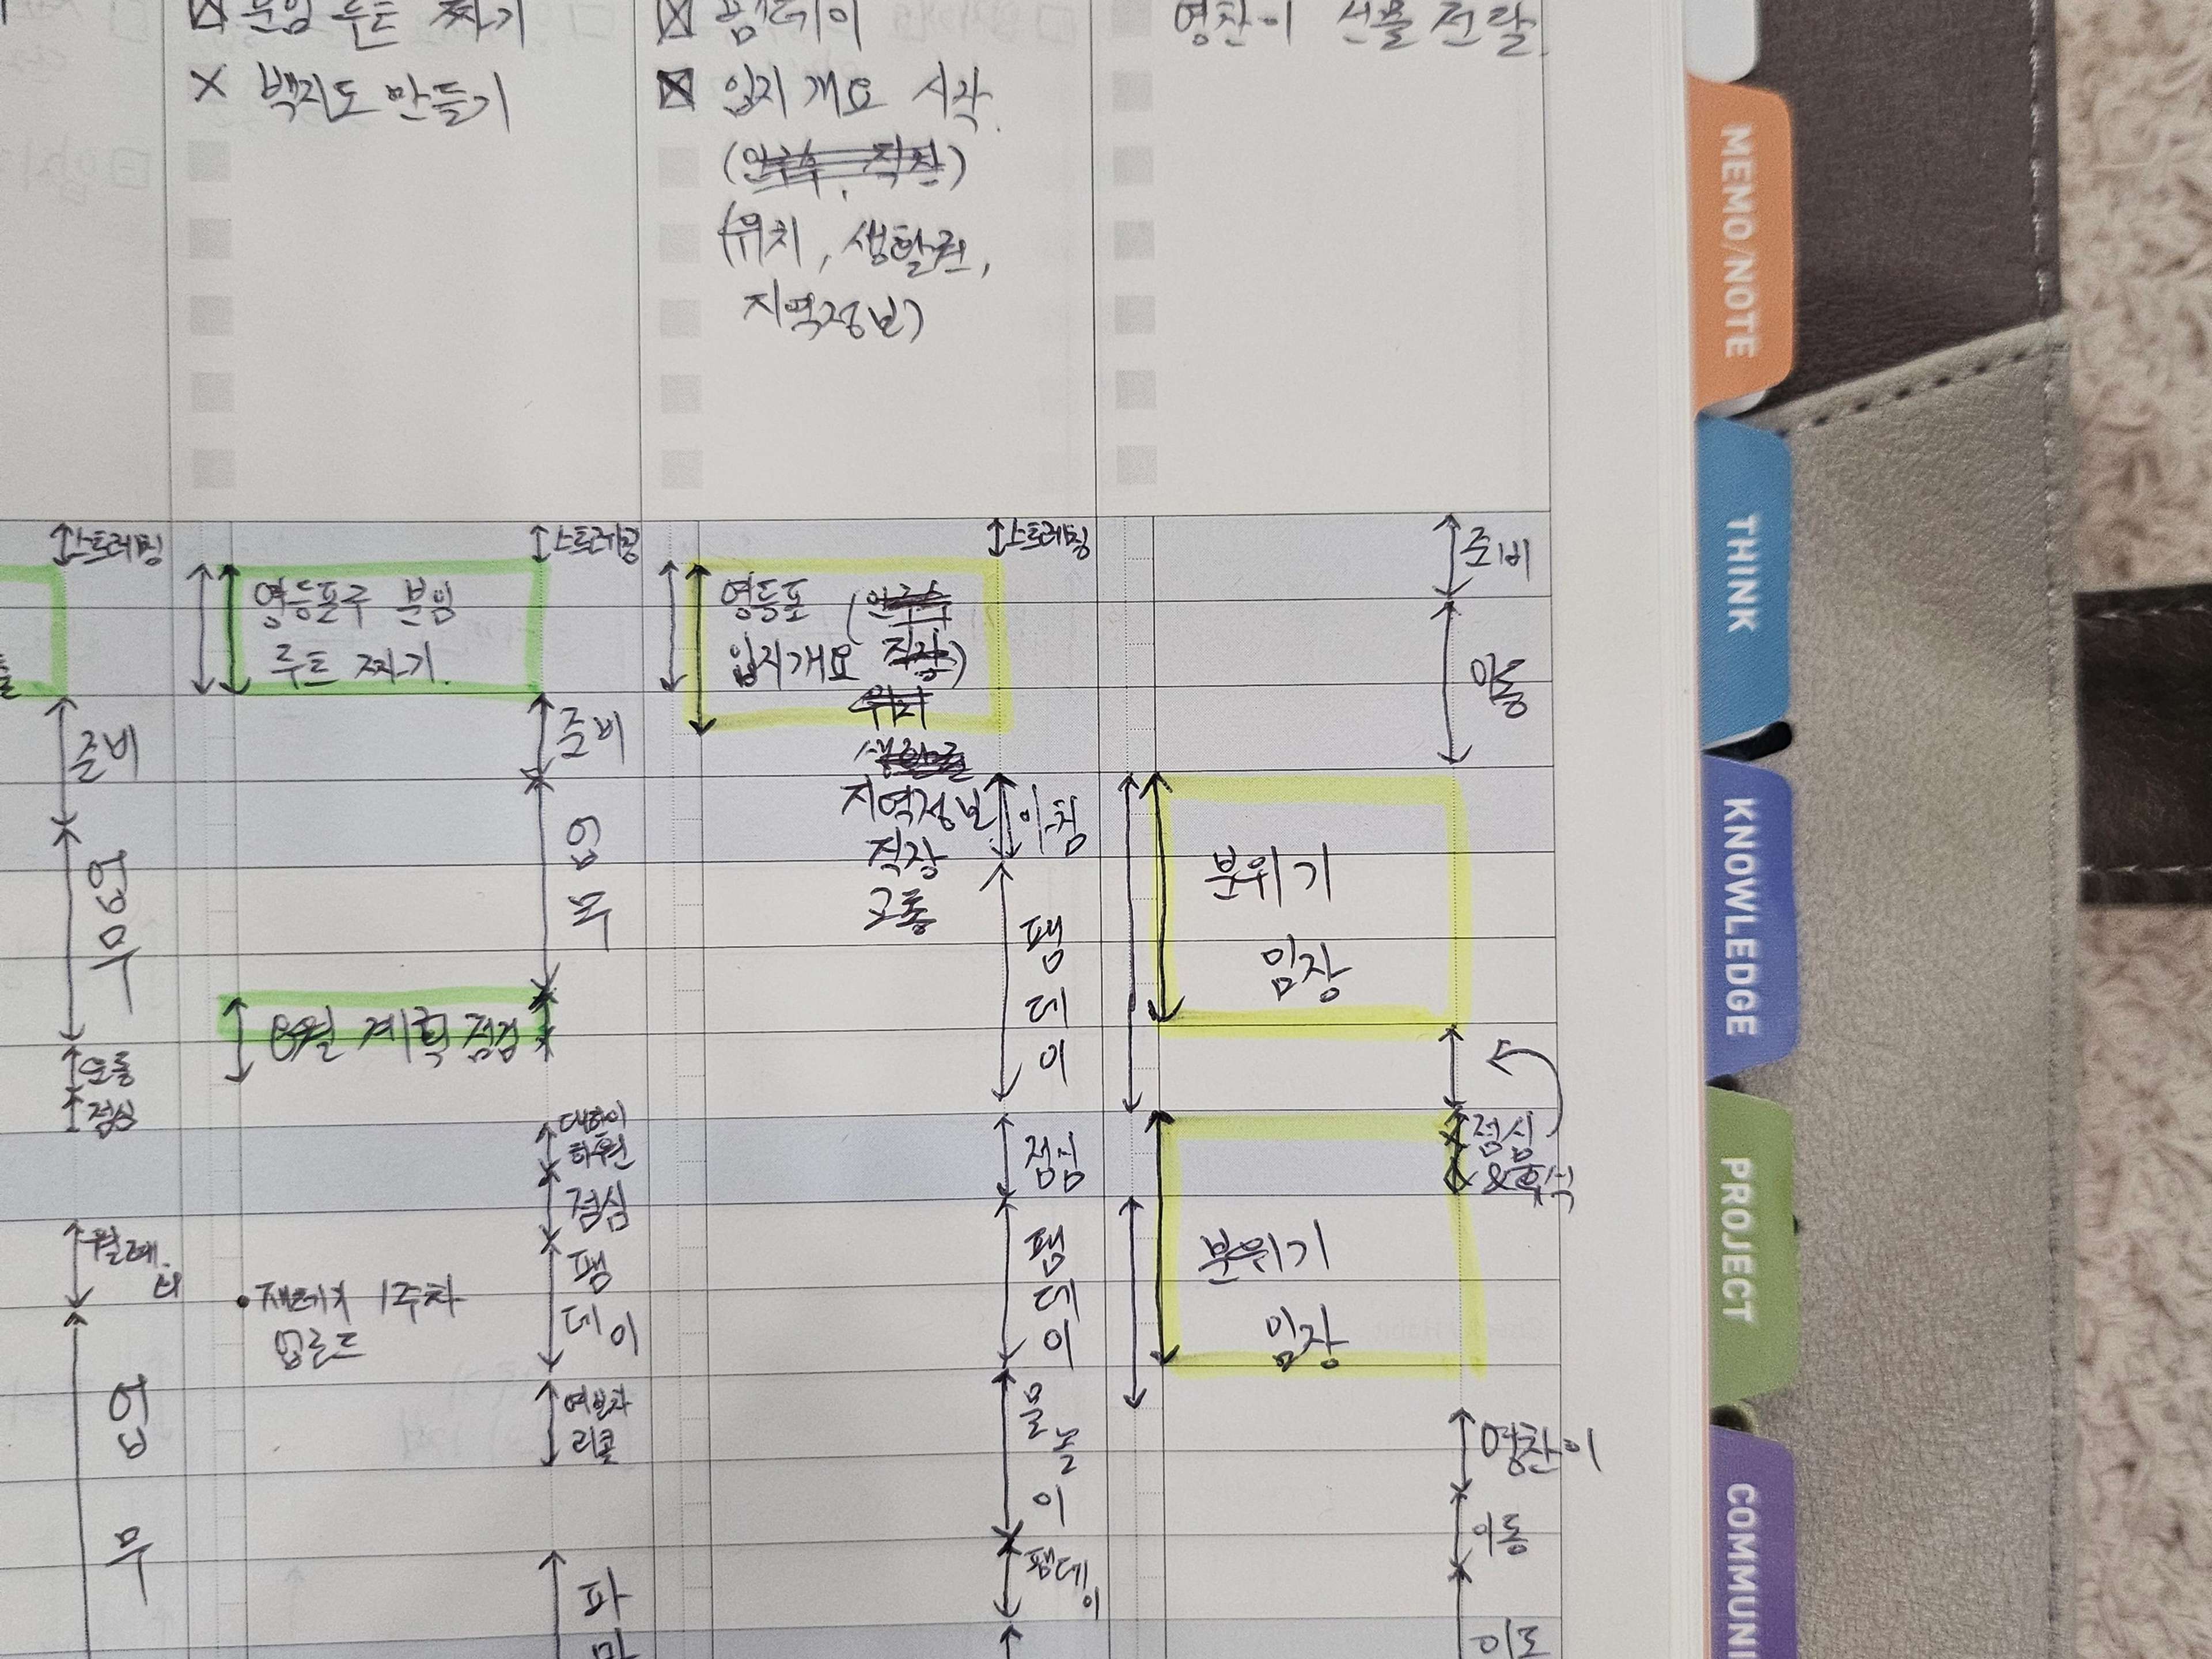 분임 루트 짜기
백지도 만들기
팸데이
입지 개요 시작
(인구수, 직장)
(위치, 생활권,
지역정보)
영찬이 선물 전달
스트레칭
준비
업무
오름
점심
월례.
업
무
영등포구 분임
루트 짜기.
스트레칭
준비
업
무
8월 계획 점검
대한이
하원
점심
팸
데이
재테기 1주차
업로드
여보자
리콜
파
영등포 (인구수
입지개요 직장)
위치
생활권
지역정보
직장
교통
스트레칭
아침
팸
데
이
점심
팸
데
이
물
놀
이
팸데
이
준비
이동
분위기
임장
점심
&휴식
분위기
임장
영찬이
이동
MEMO/NOTE
THINK
KNOWLEDGE
PROJECT
COMMUNI